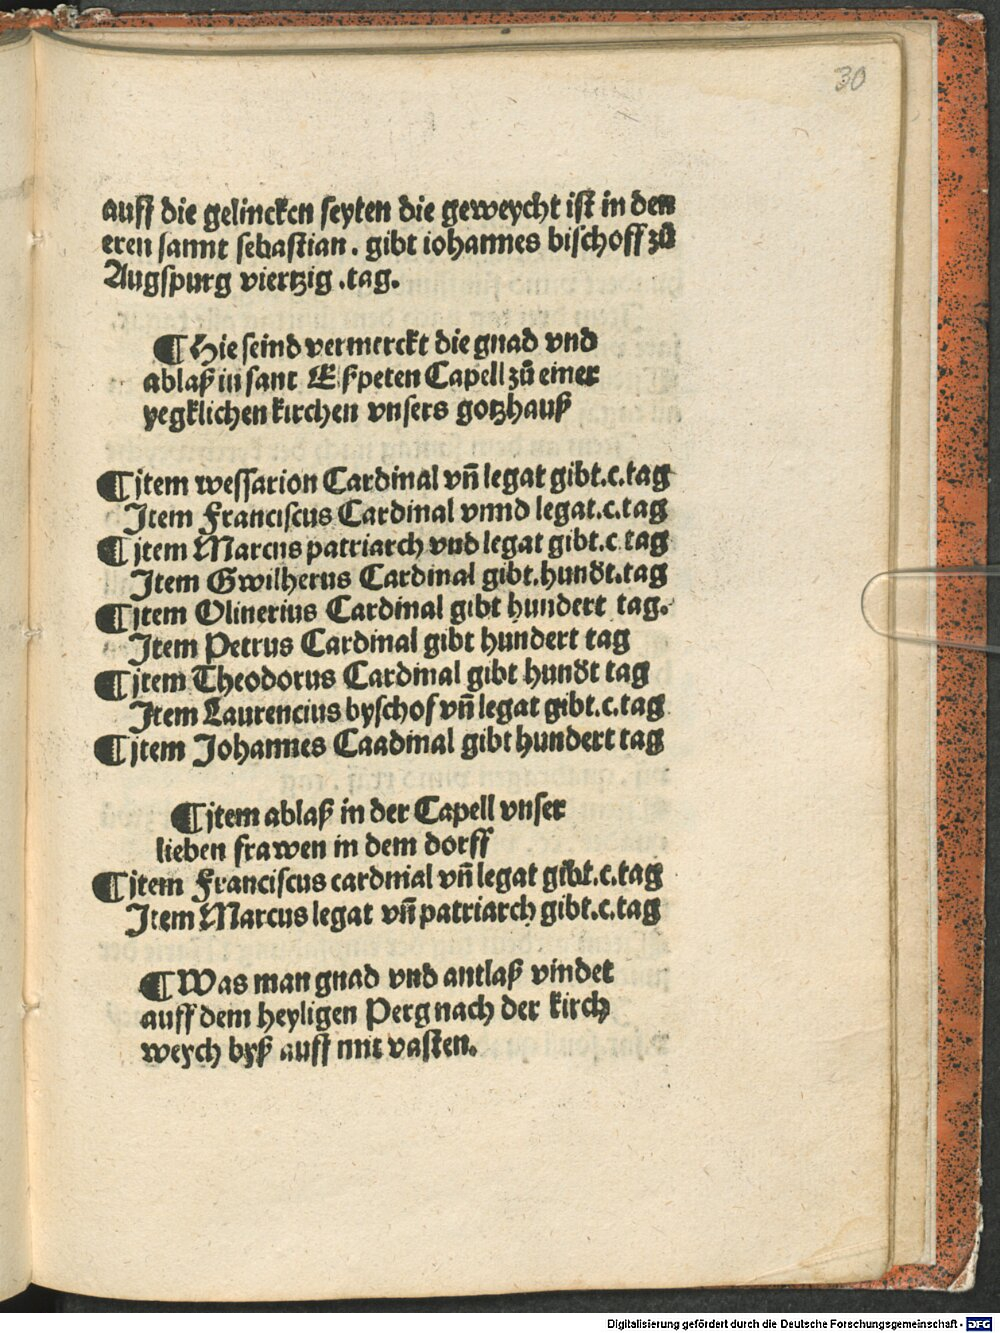 30
auff die gelincken seyten die geweycht ist in den
eren sannt sebastian. gibt iohannes bischoff zů
Augspurg viertzig .tag.
¶ Hie seind vermerckt die gnad vnd
ablaß in sant Elßpeten Capell zů einer
yegklichen kirchen vnsers gotzhauß
¶ jtem wessarion Cardinal vñ legat gibt.c.tag
Jtem Franciscus Cardinal vnnd legat.c.tag
¶ jtem Marcus patriarch vnd legat gibt.c tag
Jtem Gwilherus Cardinal gibt.hundt.tag
¶ jtem Olinerius Cardinal gibt hundert tag.
Jtem Petrus Cardinal gibt hundert tag
¶ jtem Theodorus Cardinal gibt hundt tag
Jtem Laurencius byschof vñ legat gibt.c.tag
¶ jtem Johannes Caadinal gibt hundert tag
¶ jtem ablaß in der Capell vnser
lieben frawen in dem dorff
¶ jtem Franciscus cardinal vñ legat gibt.c.tag
Jtem Marcus legat vñ patriarch gibt.c.tag
¶ Was man gnad vnd antlaß vindet
auff dem heyligen Perg nach der kirch
weych byß auff mit vasten.
Digitalisierung gefördert durch die Deutsche Forschungsgemeinschaft - DFG